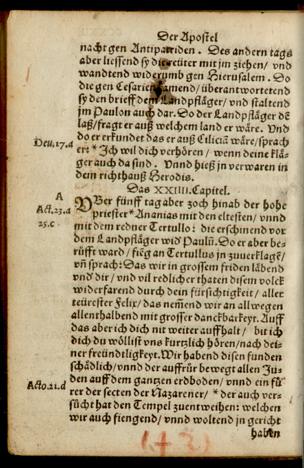 Der Apostel
nacht gen Antipatriden. Des andern tags
aber liessend sy die reüter mit jm ziehen/ vnd
wandtend widerumb gen Hierusalem. Do
die gen Cesarien kamend/ überantwortetend
sy den brieff dem Landpfläger/ vnd staltend
jm Paulon auch dar. Do der Landpfläger dē
laß/ fragt er auß welchem land er wäre. Vnd
Deu.17.d
do er erkundet das er auß Cilicia wäre/ sprach
er: * Ich wil dich verhören/ wenn deine klä-
ger auch da sind. Vnnd hieß jn verwaren in
dem richthauß Herodis.
Das XXIIII. Capitel.
A
Act.23.d
25.c
VBer fünff tag aber zoch hinab der hohe
priester * Ananias mit den eltesten/ vnnd
mit dem redner Tertullo: die erschinend vor
dem Landpfläger wid̕ Paulū. Do er aber be-
rüfft ward/ fieng an Tertullus jn zuuerklagē/
vn̄ sprach: Das wir in grossem friden läbend
vnd̕ dir/ vnd vil redlicher thaten disem volck
widerfarend durch dein fürsichtigkeit/ aller
teürester Felix/ das nem̄end wir an allwegen
allenthalbend mit grosser danckbarkeyt. Auff
das aber ich dich nit weiter auffhalt/ bit ich
dich du wöllist vns kurtzlich hören/ nach dei-
ner freündtligkeyt. Wir habend disen funden
schädlich/ vnnd der auffrür bewegt allen Ju-
den auff dem gantzen erdboden/ vnnd ein fü-
Acto.21.d
rer der secten der Nazarener/ * der auch ver-
sücht hat den Tempel zuentweihen: welchen
wir auch fiengend/ vnnd woltend in gericht
haben